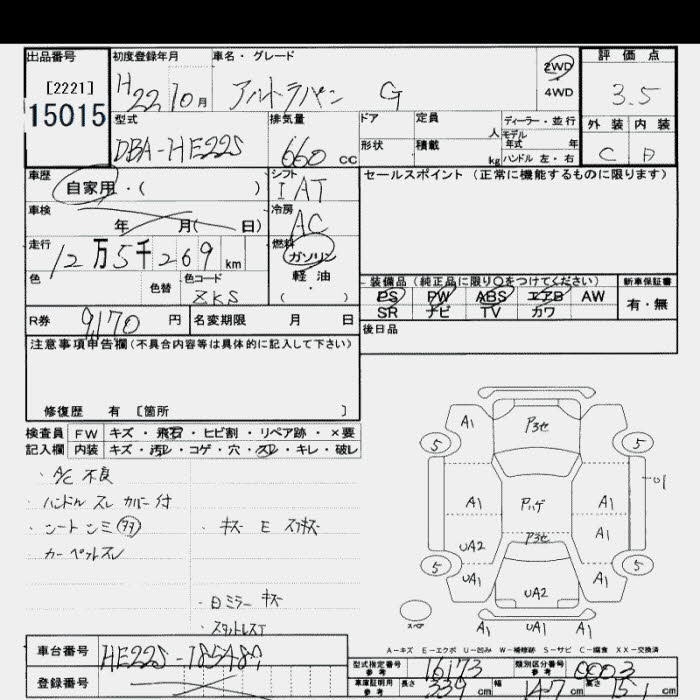 出品番号 初度登録年月 車名・グレード 評価点
[2221] H22 10月 アルトラパン G 2WD 4WD 3.5
15015
型式 排気量 ドア 定員 人 ディーラー・並行 外装 内装
DBA-HE22S 660 CC 形状 積載 kg モデル年式 年 ハンドル 左・右 C D
車歴 シフト セールスポイント (正常に機能するものに限ります)
自家用・( ) IAT
車検 年 月( 日) 冷房 AC
走行 12万5千269 km 燃料 ガソリン
軽油
( )
色 色替 色コード ZKS
装備品 (純正品に限り○をつけてください) 新車保証書
PS PW ABS エアB AW 有・無
SR ナビ TV カワ
R券 9,170 円 名変期限 月 日 後日品
注意事項申告欄(不具合内容等は具体的に記入して下さい)
修復歴 有 〔箇所 〕
検査員 FW キズ・飛石・ヒビ割・リペア跡・×要
記入欄 内装 キズ・汚レ・コゲ・穴・スレ・キレ・破レ
・A/C 不良
・ハンドル スレ カバー付
・シート シミ
・キズ E スリキズ
カーペットスレ
・白ミラー キズ
・スタットレスT
A1 P3セ
5 5
U1
A1 Pハゲ A1
UA2 P3セ A1
5 5
UA1 UA2 A1
スペア
A1 UA1 A1
A-キズ E-エクボ U-凹み W-補修跡 S-サビ C-腐食 XX-交換済
車台番号 HE22S-185489
型式指定番号 参考 16173 類別区分番号 参考 0003
登録番号
車庫証明用 参考 長さ 339 cm 幅 147 cm 高さ 151 cm